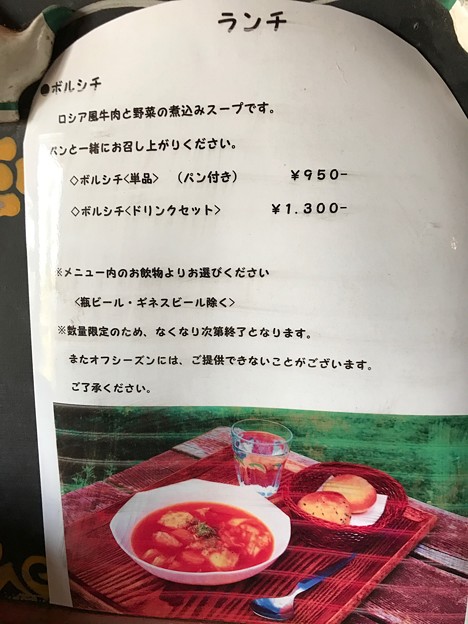 ランチ
●ボルシチ
ロシア風牛肉と野菜の煮込みスープです。
パンと一緒にお召し上がりください。
◇ボルシチ<単品> (パン付き) ￥950-
◇ボルシチ<ドリンクセット> ￥1.300-
※メニュー内のお飲物よりお選びください
<瓶ビール・ギネスビール除く>
※数量限定のため、なくなり次第終了となります。
またオフシーズンには、ご提供できないことがございます。
ご了承ください。